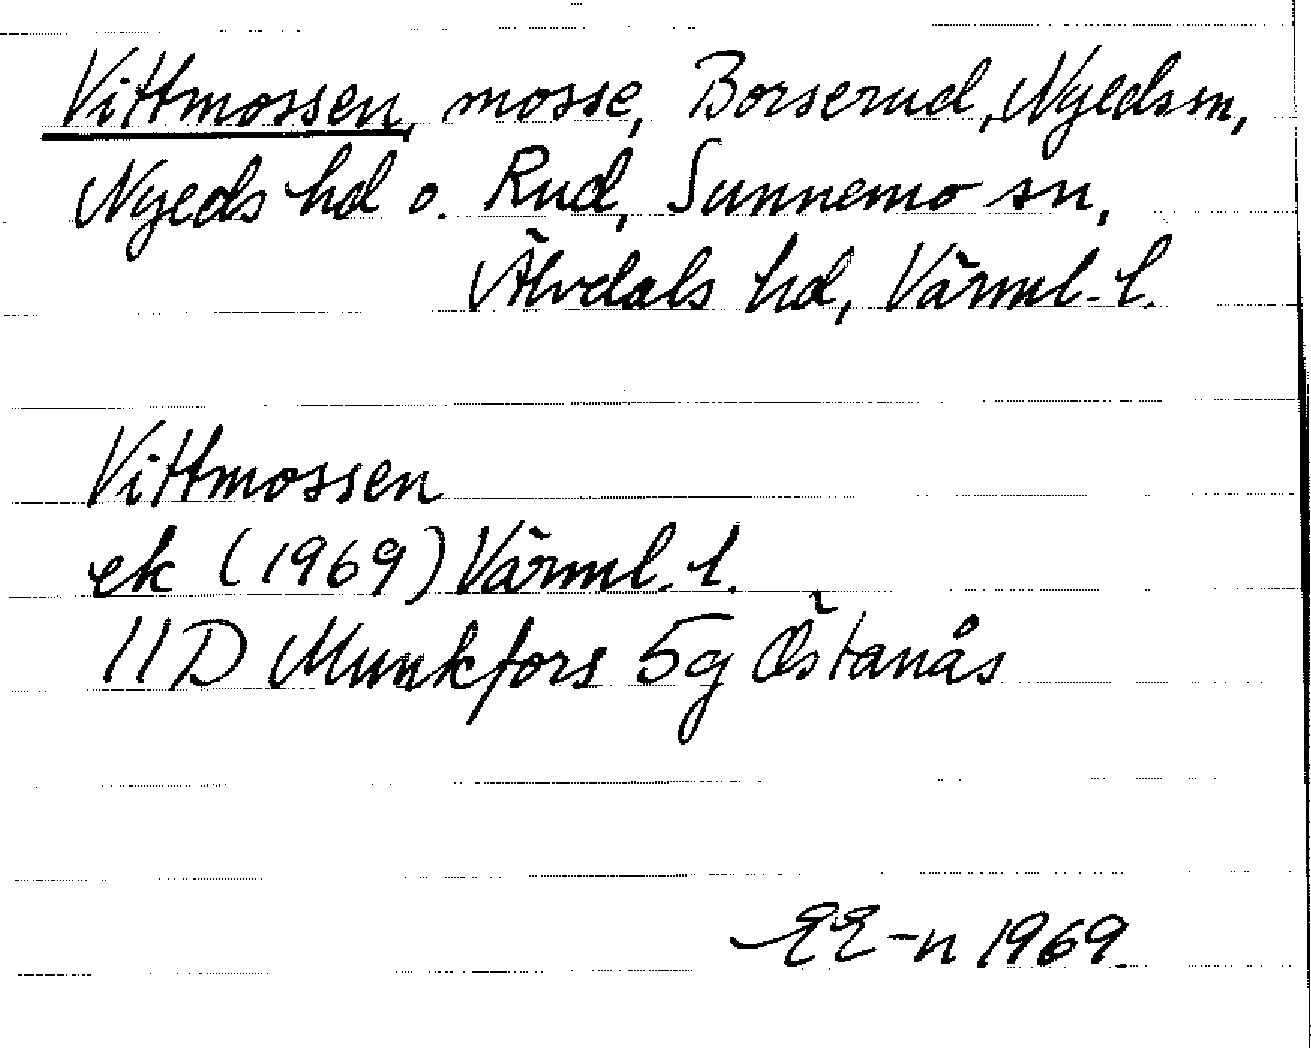 Vittmossen, mosse, Borserud, Nyeds sn,
Nyeds hd o. Rud, Sunnemo sn,
Älvdals hd, Värml. l.
Vittmossen
ek (1969) Värml. l.
11D Munkfors 5g Östanås
EE-n 1969.